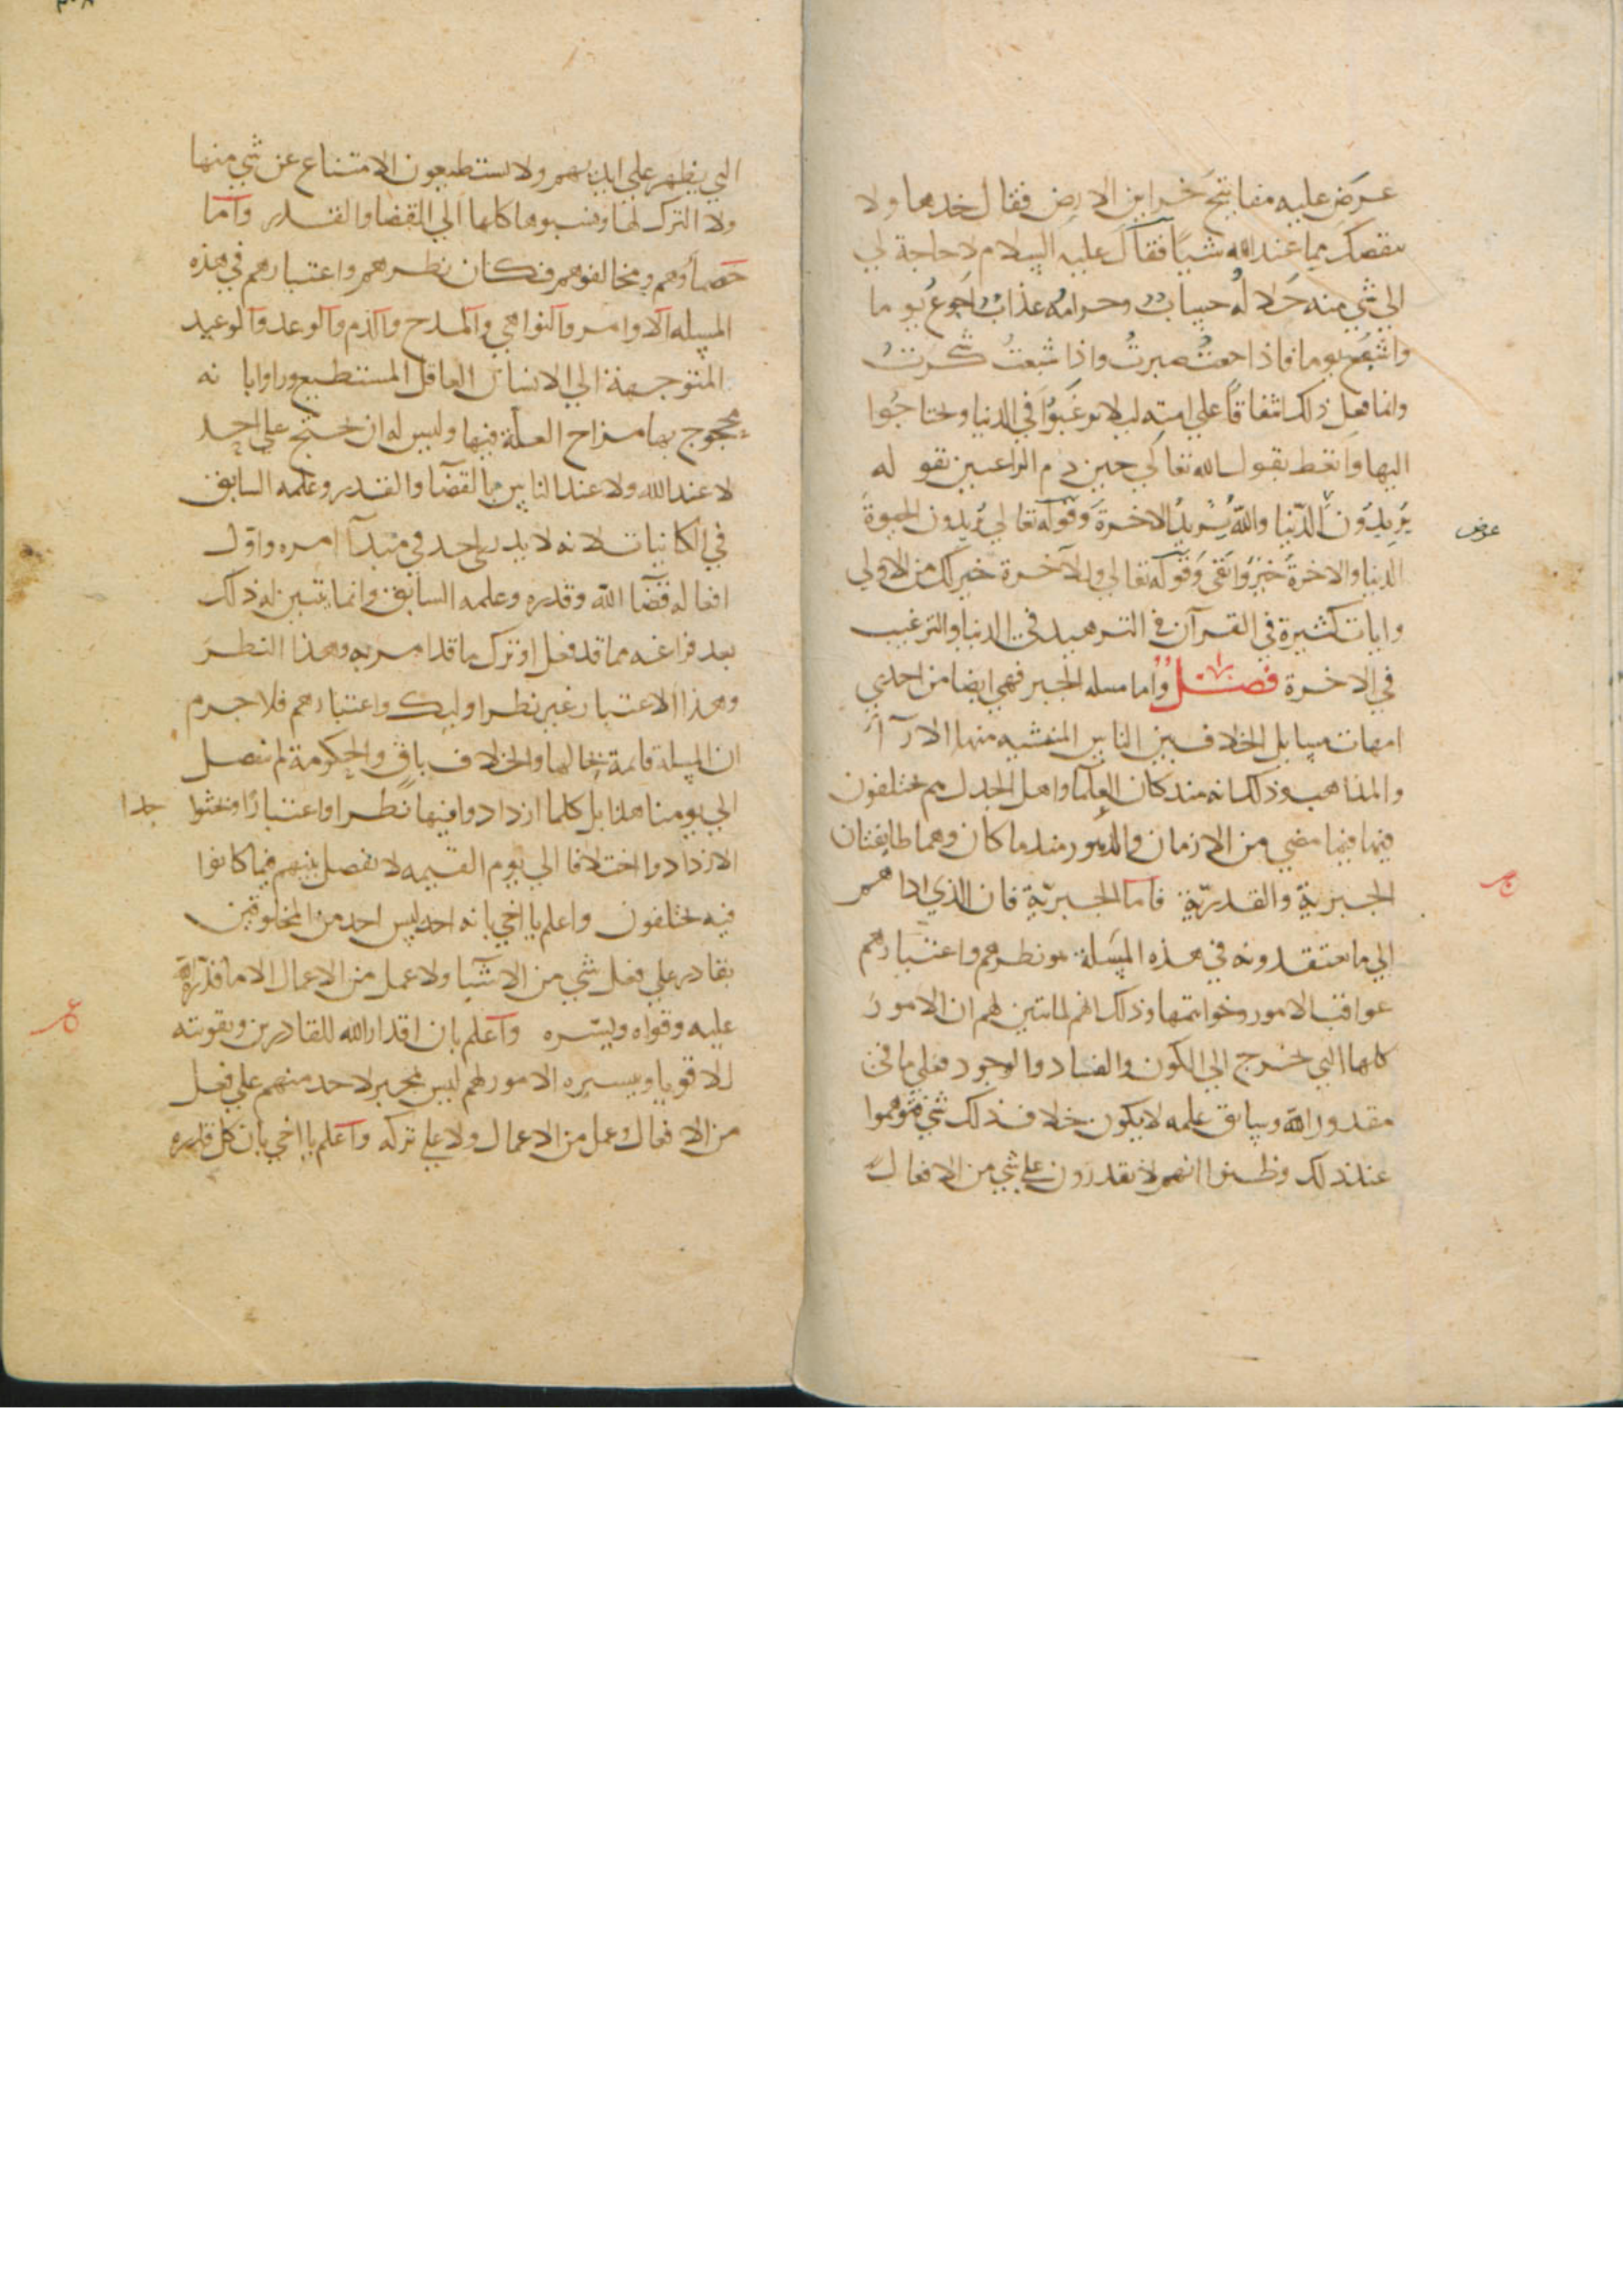 عرض عليه مفاتيح خزاين الارض فقال خدها ولا
ينقصك مما عند الله شيأ فقال عليه السلام لا حاجة لي
الي شي منه حلاله حساب وحرامه عذاب اجوع يوما
واشبع يوما فاذا جعت صبرت واذا شبعت شكرت
وانما فعل ذلك اشفاقا علي امته ليلا يرغبوا في الدنيا ويحتاجوا
اليها واتعظ بقول الله تعالي حين ذم الراغبين بقوله
يريدون الدنيا والله يريد الاخرة وقوله تعالي يريدون الحيوة
عرض
الدنيا والاخرة خير وابقي وقوله تعالي وللآخرة خير لك من الاولي
وايات كثيرة في القرآن في التزهيد في الدنيا والترغيب
في الاخرة فصل واما مسله الجبر فهي ايضا من احدي
امهات مسايل الخلاف بين الناس المنشيه منها الارآ
والمذاهب وذلك انه منذ كان العلما واهل الجدل هم مختلفون
فيها فيما مضي من الازمان والدهور منذ ما كان وهما طايفتان
الجبرية والقدرية فاما الجبرية فان الذي اداهم
الي ما يعتقدونه في هذه المسلة هو نظرهم واعتبارهم
عواقب الامور وخواتمها وذلك انهم لما تبين لهم ان الامور
كلها التي تخرج الي الكون والفساد والوجود فعلي ما في
مقدور الله وسابق علمه لا يكون خلاف ذلك شي فتوهموا
عند ذلك وظنوا انهم لا يقدرون علي شي من الافعال
التي يظهر علي ايديهم ولا يستطيعون الامتناع عن شي منها
ولا الترك لها ونسبوها كلها الي القضا والقدر واما
خصماؤهم ومخالفوهم فكان نظرهم واعتبارهم في هذه
المسله الاوامر والنواهي والمدح والذم والوعد والوعيد
المتوجهة الي الانسان العاقل المستطيع وراوا بانه
محجوج بها مزاح العلة فيها وليس له ان يحتج علي احد
لا عند الله ولا عند الناس بالقضا والقدر وعلمه السابق
في الكاينات لانه لا يدري احد في مبتدآ امره واول
افعاله قضآ الله وقدره وعلمه السابق وانما يتبين له ذلك
بعد فراغه مما قد فعل او ترك ما قد امر به وهذا النظر
وهذا الاعتبار غير نظر اوليك واعتبارهم فلا جرم
ان المسلة قائمة بحالها والخلاف باق والحكومة لم تفصل
الي يومنا هذا بل كلما ازدادوا فيها نظرا واعتبارا وبحثوا جدا
الا ازدادوا اختلافا الي يوم القيمه لا تفصل بينهم فيما كانوا
فيه يختلفون واعلم يا اخي بانه احد ليس احد من المخلوقين
بقادر علي فعل شي من الاشيا ولا عمل من الاعمال الا ما قدره الله
عليه وقواه ويسره واعلم بان اقدار الله للقادرين وتقويته
للاقويا وتيسيره الامور لهم ليس بجبر لاحد منهم علي فعل
من الافعال وعمل من الاعمال ولا علي تركه واعلم يا اخي بان كل قدره